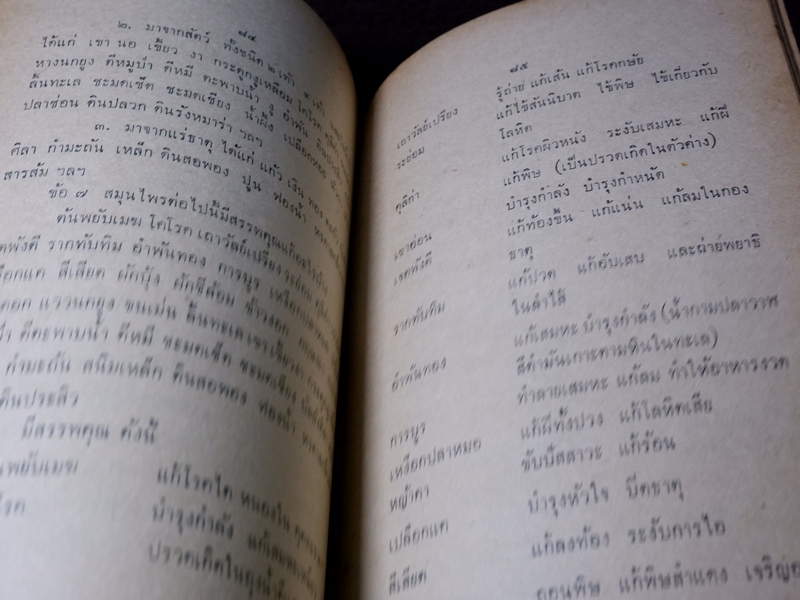 ๘๔
๒. มาจากสัตว์ ทั้งชนิด ๒ เท้า ๔ เท้า
ได้แก่ เขา นอ เขี้ยว งา กระดูกงูเหลือม โคโรค
หางนกยูง ดีหมูป่า ดีหมี ตะพาบน้ำ งู อำพัน
ลิ้นทะเล ชะมดเช็ด ชะมดเชียง น้ำผึ้ง เปลือกหอย
ปลาช่อน ดินปลวก ดินรังหมาร่า ฯลฯ
๓. มาจากแร่ธาตุ ได้แก่ แก้ว เงิน ทอง
ศิลา กำมะถัน เหล็ก ดินสอพอง ปูน ฟองน้ำ
สารส้ม ฯลฯ
ข้อ ๗ สมุนไพรต่อไปนี้มีสรรพคุณแก้อะไรบ้าง
ต้นพยับเมฆ โคโรค เถาวัลย์เปรียง ระย่อม
เจตพังดี รากทับทิม อำพันทอง การบูร เหงือกปลาหมอ
เปลือกแค สีเสียด ผักบุ้ง ผักชีล้อม ข้าวงอก
แววนกยูง ขนเม่น ลิ้นทะเล เขา เขี้ยว งา
ดีตะพาบน้ำ ดีหมี ชะมดเช็ด ชะมดเชียง
กำมะถัน สนิมเหล็ก ดินสอพอง ฟองน้ำ
ดินประสิว
มีสรรพคุณ ดังนี้
ต้นพยับเมฆ แก้โรคไต หนองใน
โคโรค บำรุงกำลัง แก้ลม
ปรวดเกิดในถุงน้ำดี
๘๕
รู้ถ่าย แก้เส้น แก้โรคกษัย
เถาวัลย์เปรียง แก้ไข้สันนิบาต ไข้พิษ ไข้เกี่ยวกับ
ระย่อม โลหิต
แก้โรคผิวหนัง ระงับเสมหะ แก้ฝี
กุลิก่า แก้พิษ (เป็นปรวดเกิดในตัวค่าง)
เขาอ่อน บำรุงกำลัง บำรุงกำหนัด
เจตพังดี แก้ท้องขึ้น แก้แน่น แก้ลมในกอง
ธาตุ
รากทับทิม แก้ปวด แก้อับเสบ และถ่ายพยาธิ
ในลำไส้
อำพันทอง แก้เสมหะ บำรุงกำลัง (น้ำกามปลาวาฬ
สีดำมันเกาะตามหินในทะเล)
การบูร ทำลายเสมหะ แก้ลม ทำให้อาหารงวด
เหงือกปลาหมอ แก้ฝีทั้งปวง แก้โลหิตเสีย
หญ้าคา ขับปัสสาวะ แก้ร้อน
เปลือกแค บำรุงหัวใจ ปิดธาตุ
สีเสียด แก้ลงท้อง ระงับการไอ
ถอนพิษ แก้พิษสำแดง เจริญ